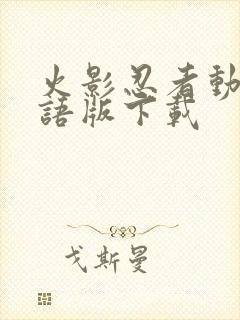 火影忍者動
語版下載
戈斯曼